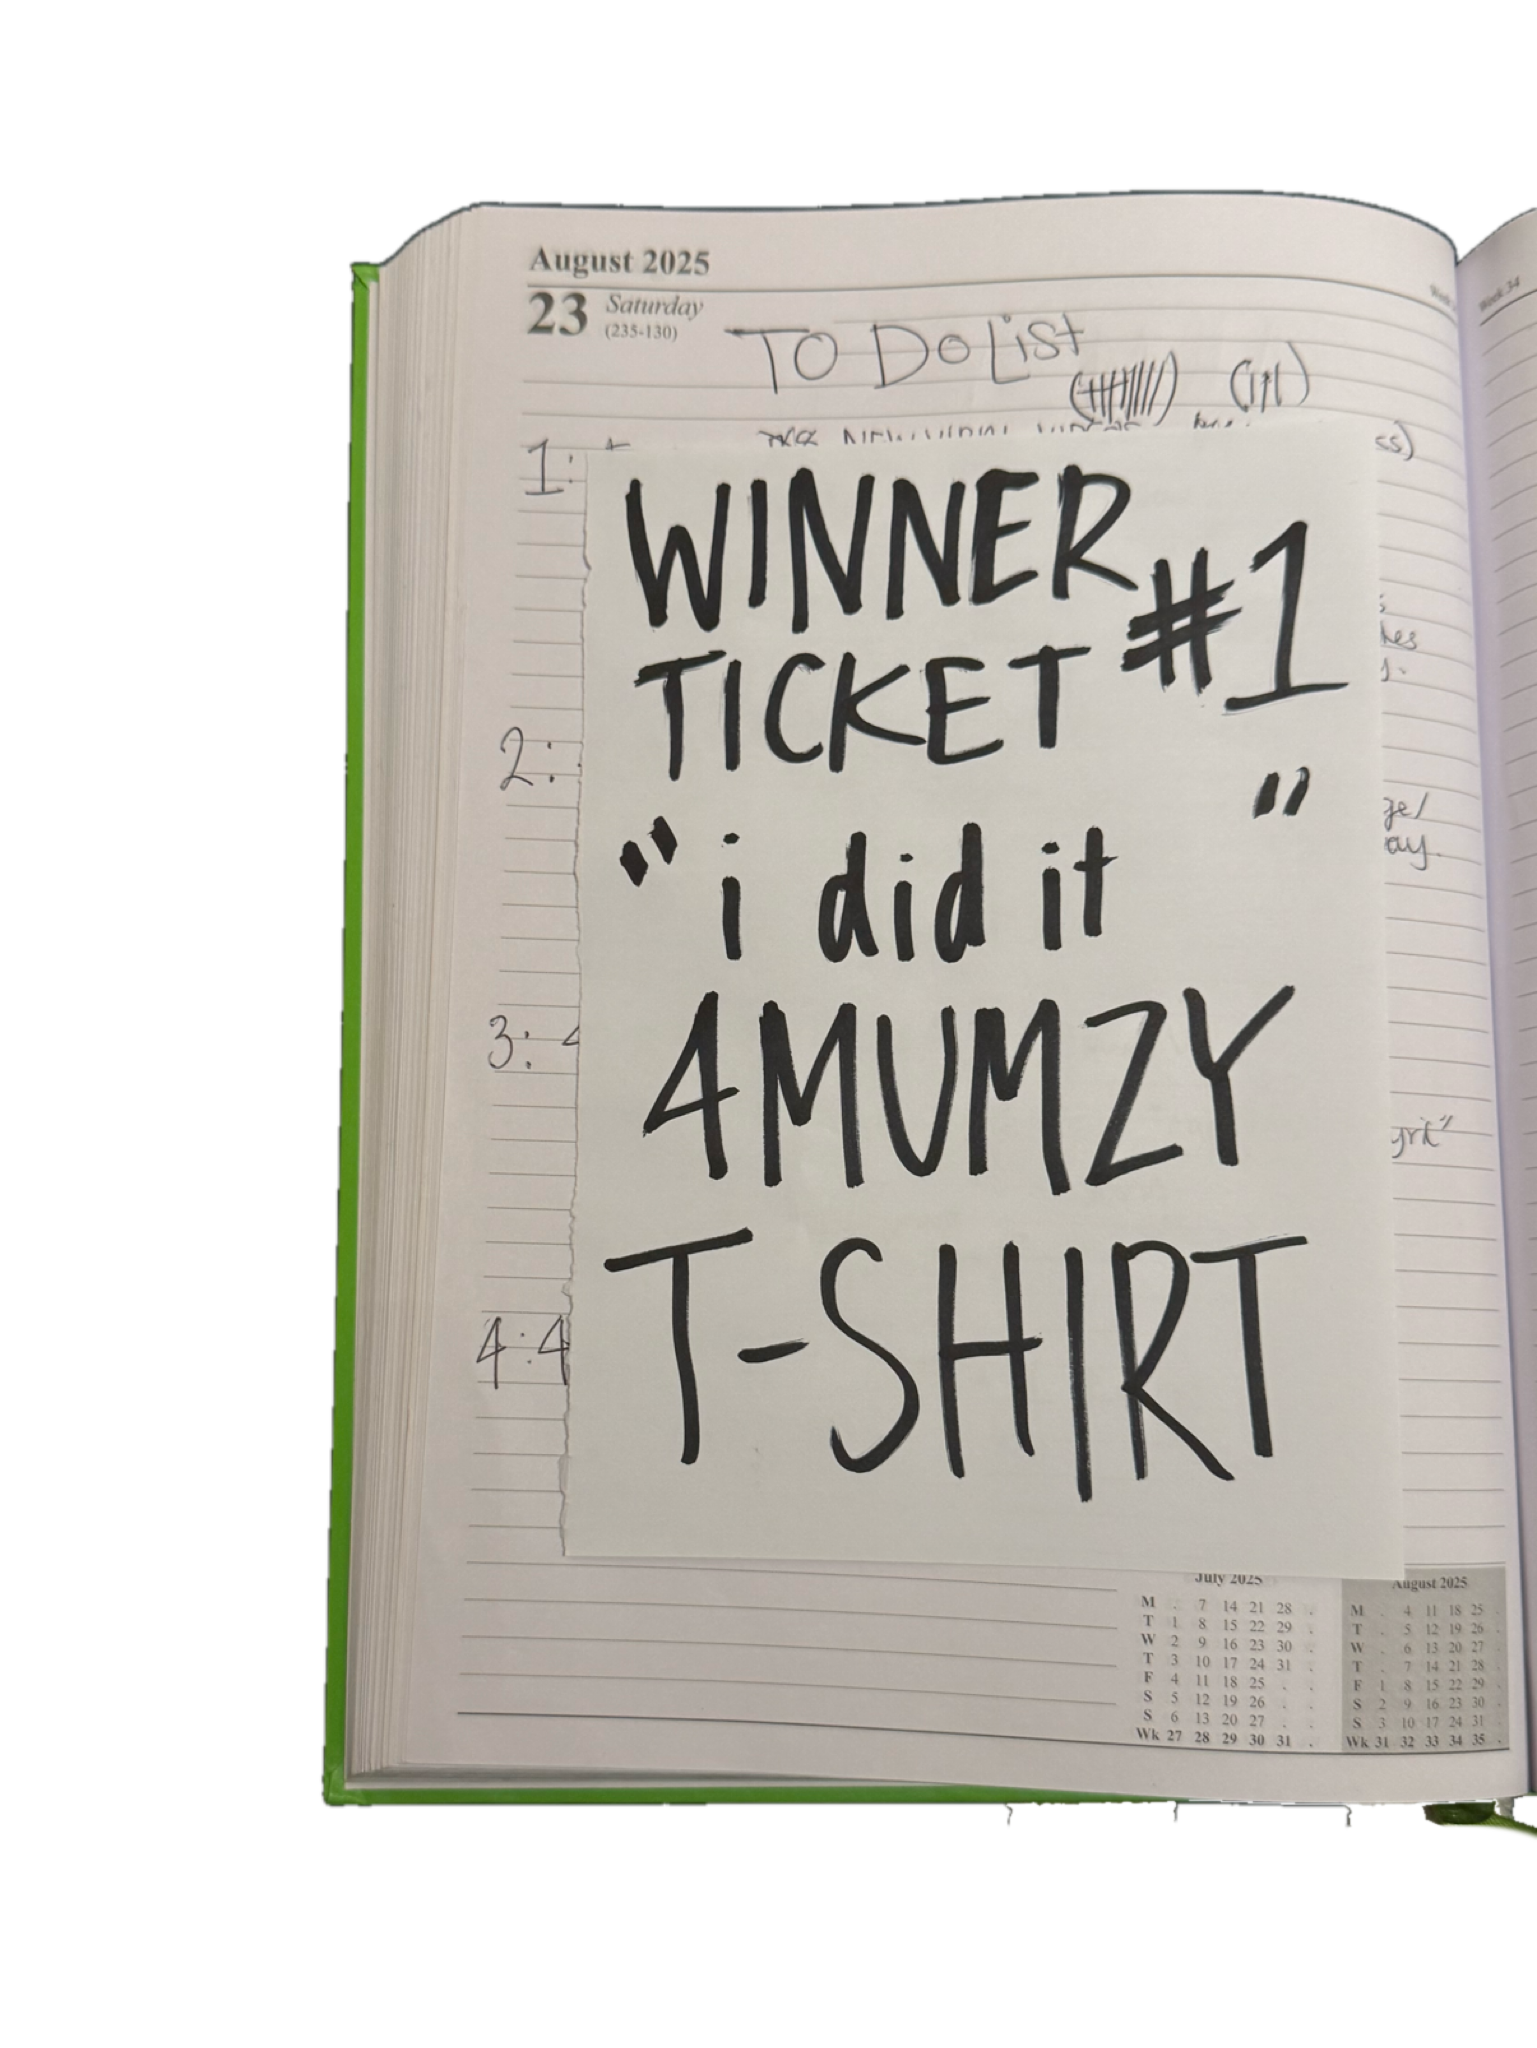 August 2025
23 Saturday
(235-130)
TO DO List
1:
WINNER
TICKET #1
"i did it "
4MUMZY
T-SHIRT
ss)
hes
2:
ge/
ay.
3:
yrit"
4:4
Week 34
July 2025
M . 7 14 21 28 .
T 1 8 15 22 29 .
W 2 9 16 23 30 .
T 3 10 17 24 31 .
F 4 11 18 25 . .
S 5 12 19 26 . .
S 6 13 20 27 . .
Wk 27 28 29 30 31 .
August 2025
M . 4 11 18 25 .
T . 5 12 19 26 .
W . 6 13 20 27 .
T . 7 14 21 28 .
F 1 8 15 22 29 .
S 2 9 16 23 30 .
S 3 10 17 24 31 .
Wk 31 32 33 34 35 .